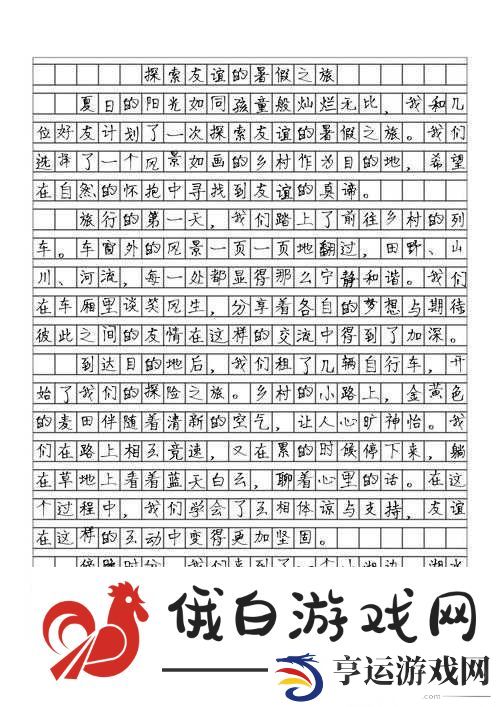 探索友谊的暑假之旅
夏日的阳光如同孩童般灿烂无比，我和几
位好友计划了一次探索友谊的暑假之旅。我们
选择了一个风景如画的乡村作为目的地，希望
在自然的怀抱中寻找到友谊的真谛。
旅行的第一天，我们踏上了前往乡村的列
车。车窗外的风景一页一页地翻过，田野、山
川、河流，每一处都显得那么宁静和谐。我们
在车厢里谈笑风生，分享着各自的梦想与期待
彼此之间的友情在这样的交流中得到了加深。
到达目的地后，我们租了几辆自行车，开
始了我们的探险之旅。乡村的小路上，金黄色
的麦田伴随着清新的空气，让人心旷神怡。我
们在路上相互竞速，又在累的时候停下来，躺
在草地上看着蓝天白云，聊着心里的话。在这
个过程中，我们学会了互相体谅与支持，友谊
在这样的互动中变得更加坚固。
我们来到了一个小湖边，湖水
俄白游戏网
亨运游戏网